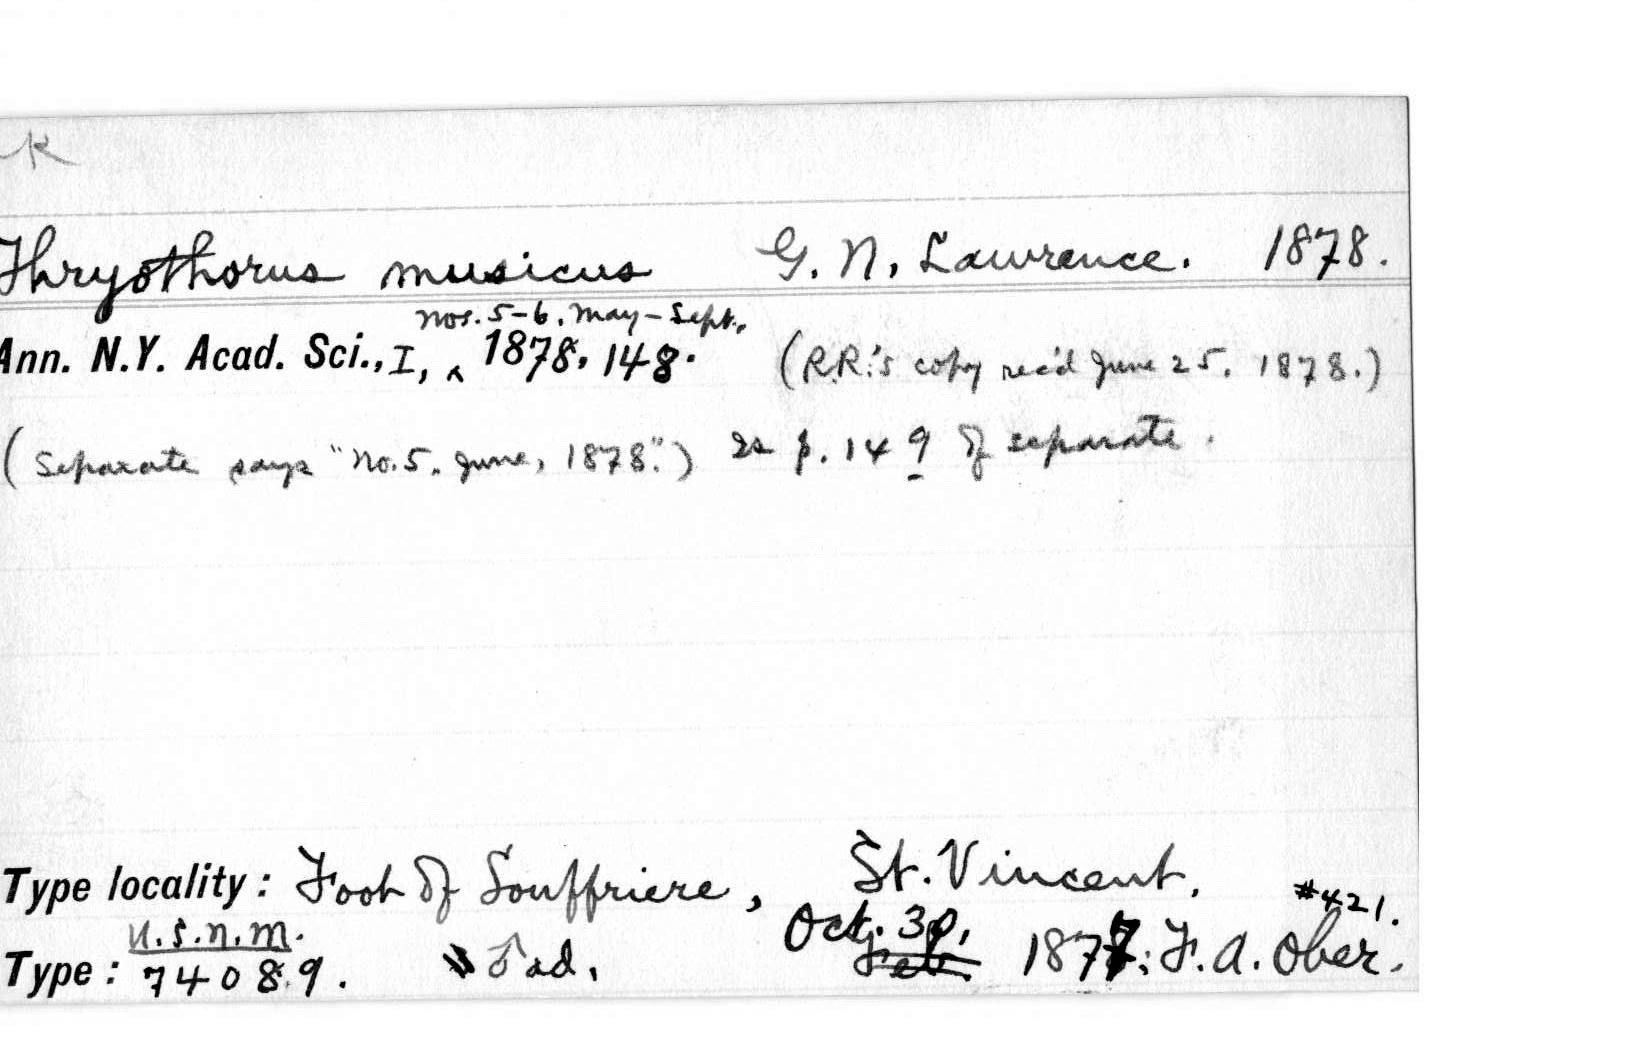 K
Thryothorus musicus G. N. Lawrence. 1878.
Nos. 5-6, May-Sept.,
Ann. N.Y. Acad. Sci., I, ‸ 1878, 148. (R.R.'s copy rec'd June 25, 1878.)
(Separate says "No. 5, June, 1878.") Is p. 149 of separate.
Type locality: Foot of Souffriere, St. Vincent.
#421.
U.S.N.M. Oct. 30,
Type: 74089. ♂ ad. Feb. 1877; F. A. Ober.